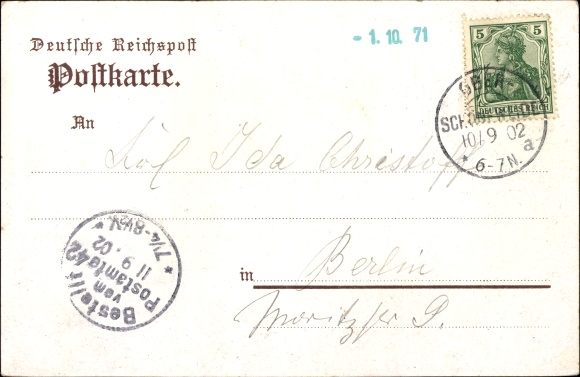 Deutsche Reichspost
Postkarte.
- 1. 10. 71
5 5
DEUTSCHES REICH
10/9 02
a
* 6-7N. *
An
Ida Christoff
in Berlin
Moritzstr
Bestellt
vom
Postamte 42
11 9. 02
* 7¼-8½V *